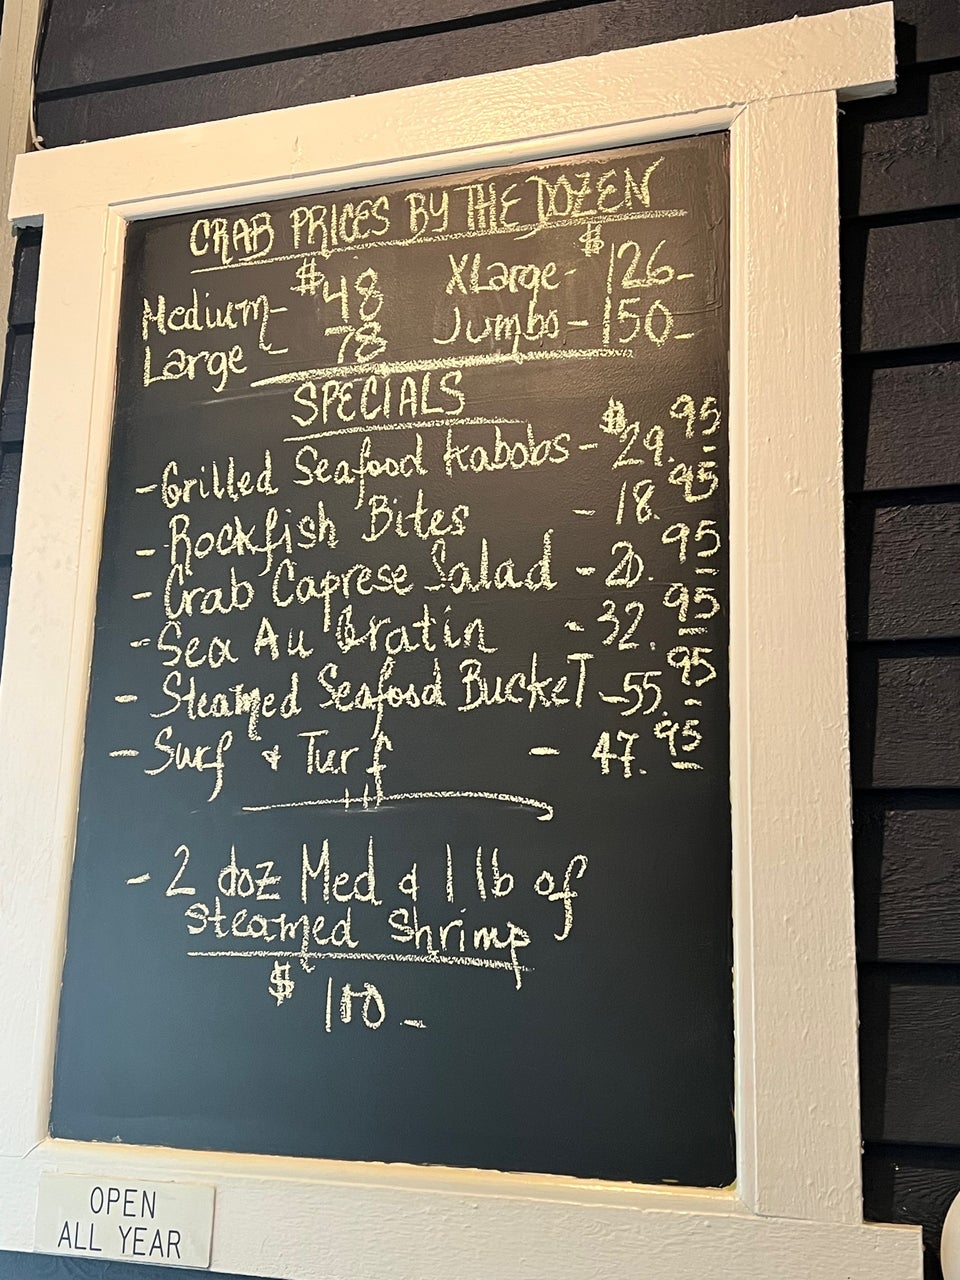 CRAB PRICES BY THE DOZEN
Medium- $48 XLarge- $126-
Large - 78 Jumbo - 150-
SPECIALS
-Grilled Seafood Kabobs - $29.95
- Rockfish Bites - 18.95
- Crab Caprese Salad - 20.95
- Sea Au Gratin - 32.95
- Steamed Seafood BuckeT - 55.95
- Surf & Turf - 47.95
- 2 doz Med & 1 lb of
steamed shrimp
$ 100-
OPEN
ALL YEAR